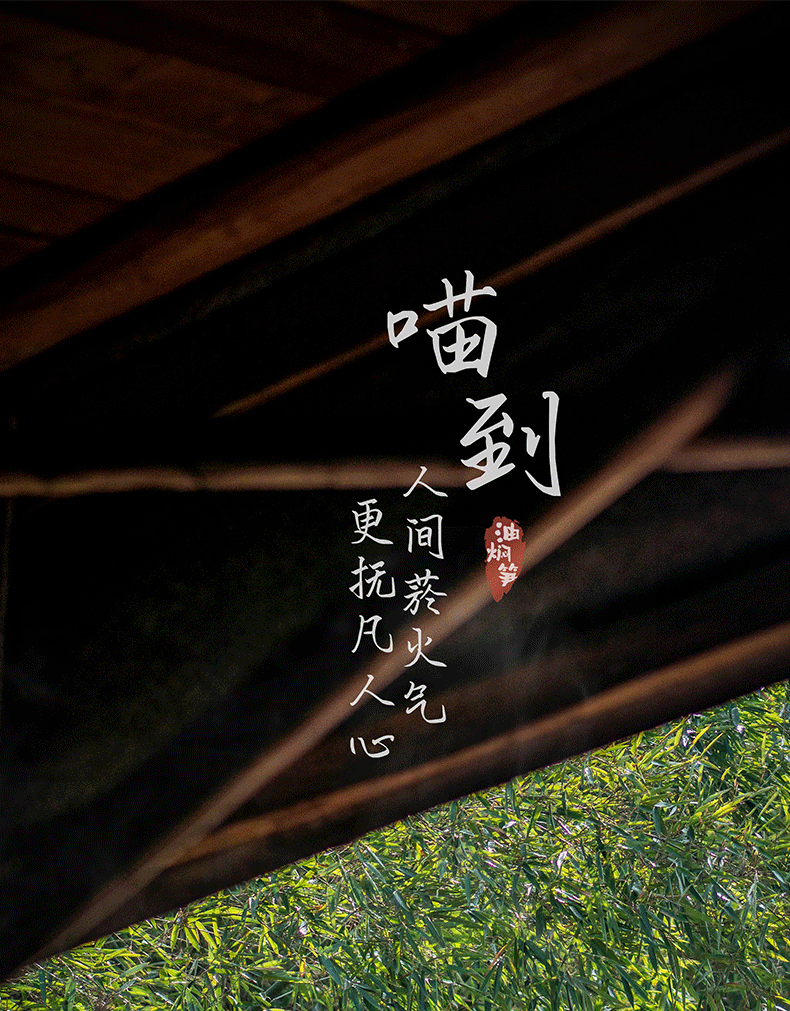 喵到
人间菸火气
更抚凡人心
油焖笋